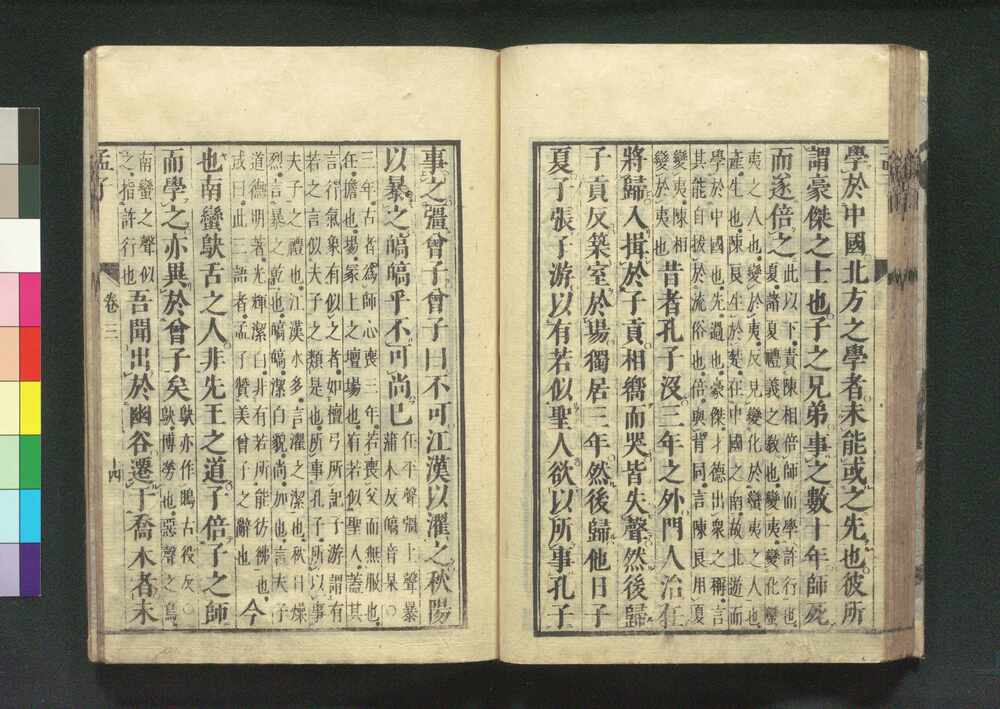 學於中國北方之學者未能或之先也彼所
謂豪傑之士也子之兄弟事之數十年師死
而遂倍之
此以下責陳相倍師而學許行也
夏諸夏禮義之敎也變夷變化蠻
夷之人也變於夷反見變化於蠻夷之人也
產生也陳良生於楚在中國之南故北遊而
學於中國也先過也豪傑才德出衆之稱言
其能自拔於流俗也倍與背同言陳良用夏
變夷陳相
變於夷也
昔者孔子沒三年之外門人治任
將歸入揖於子貢相嚮而哭皆失聲然後歸
子貢反築室於場獨居三年然後歸他日子
夏子張子游以有若似聖人欲以所事孔子
事之彊曾子曾子曰不可江漢以濯之秋陽
以暴之皜皜乎不可尚已
任平聲彊上聲暴
蒲木反皜音杲○
三年古者爲師心喪三年若喪父而無服也
任擔也場冢上之壇場也有若似聖人蓋其
言行氣象有似之者如檀弓所記子游謂有
若之言似夫子之類是也所事孔子所以事
夫子之禮也江漢水多言濯之潔也秋日燥
烈言暴之乾也皜皜潔白貌尚加也言夫子
道德明著光輝潔白非有若所能彷彿也
或曰此三語者孟子贊美曾子之辭也
今
也南蠻鴃舌之人非先王之道子倍子之師
而學之亦異於曾子矣
鴃亦作鵙古役反○
鴃博勞也惡聲之鳥
南蠻之聲似
之指許行也
吾聞出於幽谷遷于喬木者未
孟子 卷三 十四